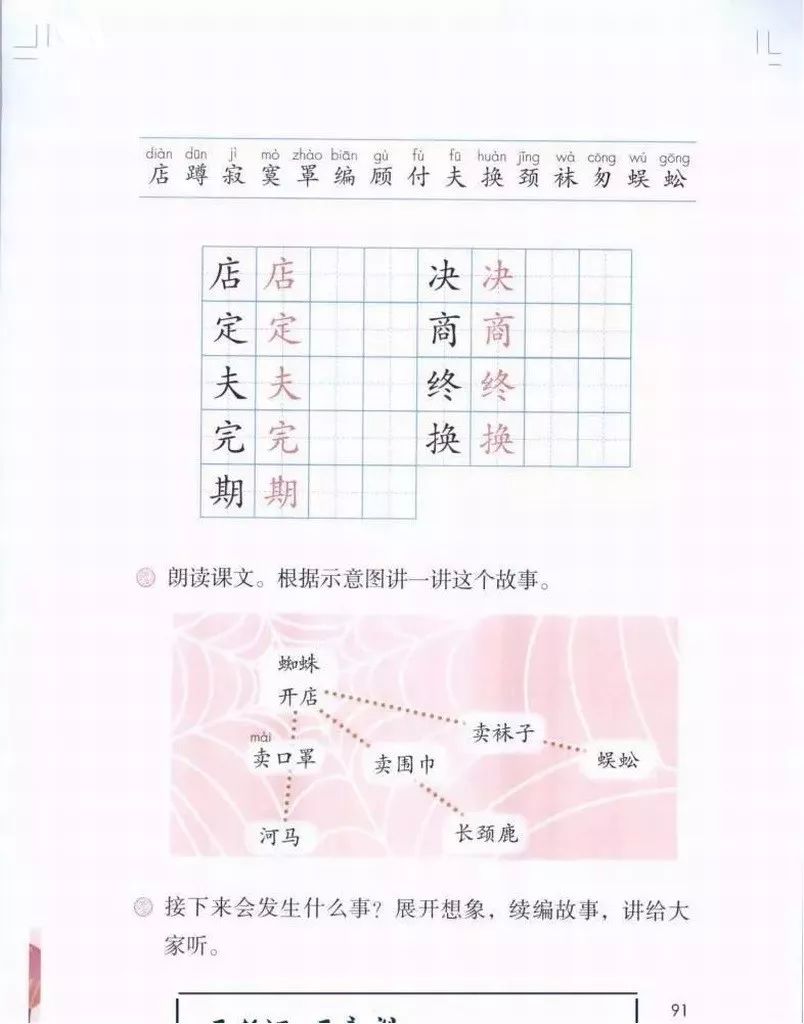 diàn dūn jì mò zhào biān gù fù fū huàn jǐng wà cōng wú gōng
店 蹲 寂 寞 罩 编 顾 付 夫 换 颈 袜 匆 蜈 蚣
店 店 决 决
定 定 商 商
夫 夫 终 终
完 完 换 换
期 期
朗读课文。根据示意图讲一讲这个故事。
蜘蛛
开店
mài
卖口罩 卖围巾 卖袜子 蜈蚣
河马 长颈鹿
接下来会发生什么事？展开想象，续编故事，讲给大
家听。
91